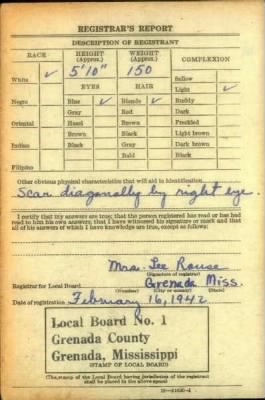 REGISTRAR'S REPORT
DESCRIPTION OF REGISTRANT
RACE HEIGHT (Approx.) WEIGHT (Approx.) COMPLEXION
5'10" 150 Sallow
White ✓ EYES HAIR Light ✓
Negro Blue ✓ Blonde ✓ Ruddy
Gray Red Dark
Oriental Hazel Brown Freckled
Brown Black Light brown
Indian Black Gray Dark brown
Bald Black
Filipino
Other obvious physical characteristics that will aid in identification
Scar diagonally by right eye.
I certify that my answers are true; that the person registered has read or has had
read to him his own answers; that I have witnessed his signature or mark and that
all of his answers of which I have knowledge are true, except as follows:
Mrs. Lee Rouse
(Signature of registrar)
Registrar for Local Board Grenada Miss.
(Number) (City or county) (State)
Date of registration February 16, 1942
Local Board No. 1
Grenada County
Grenada, Mississippi
(STAMP OF LOCAL BOARD)
(The stamp of the Local Board having jurisdiction of the registrant
shall be placed in the above space)